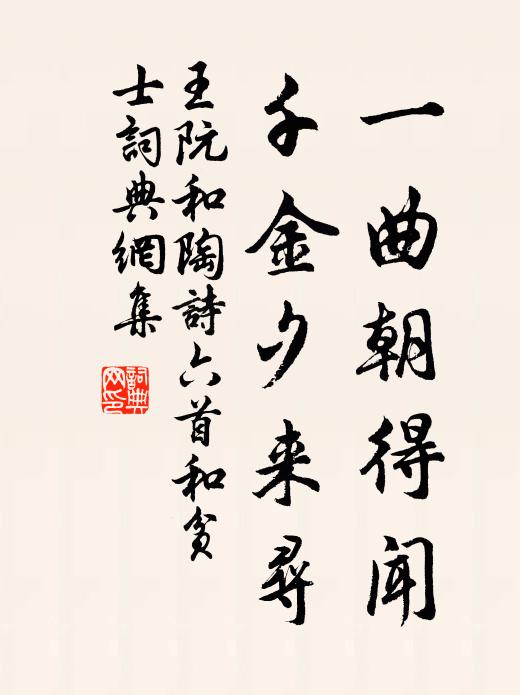 一曲朝得闻
千金夕来尋
王阮和陶詩六首和貧
士詞典網集
詞典網印